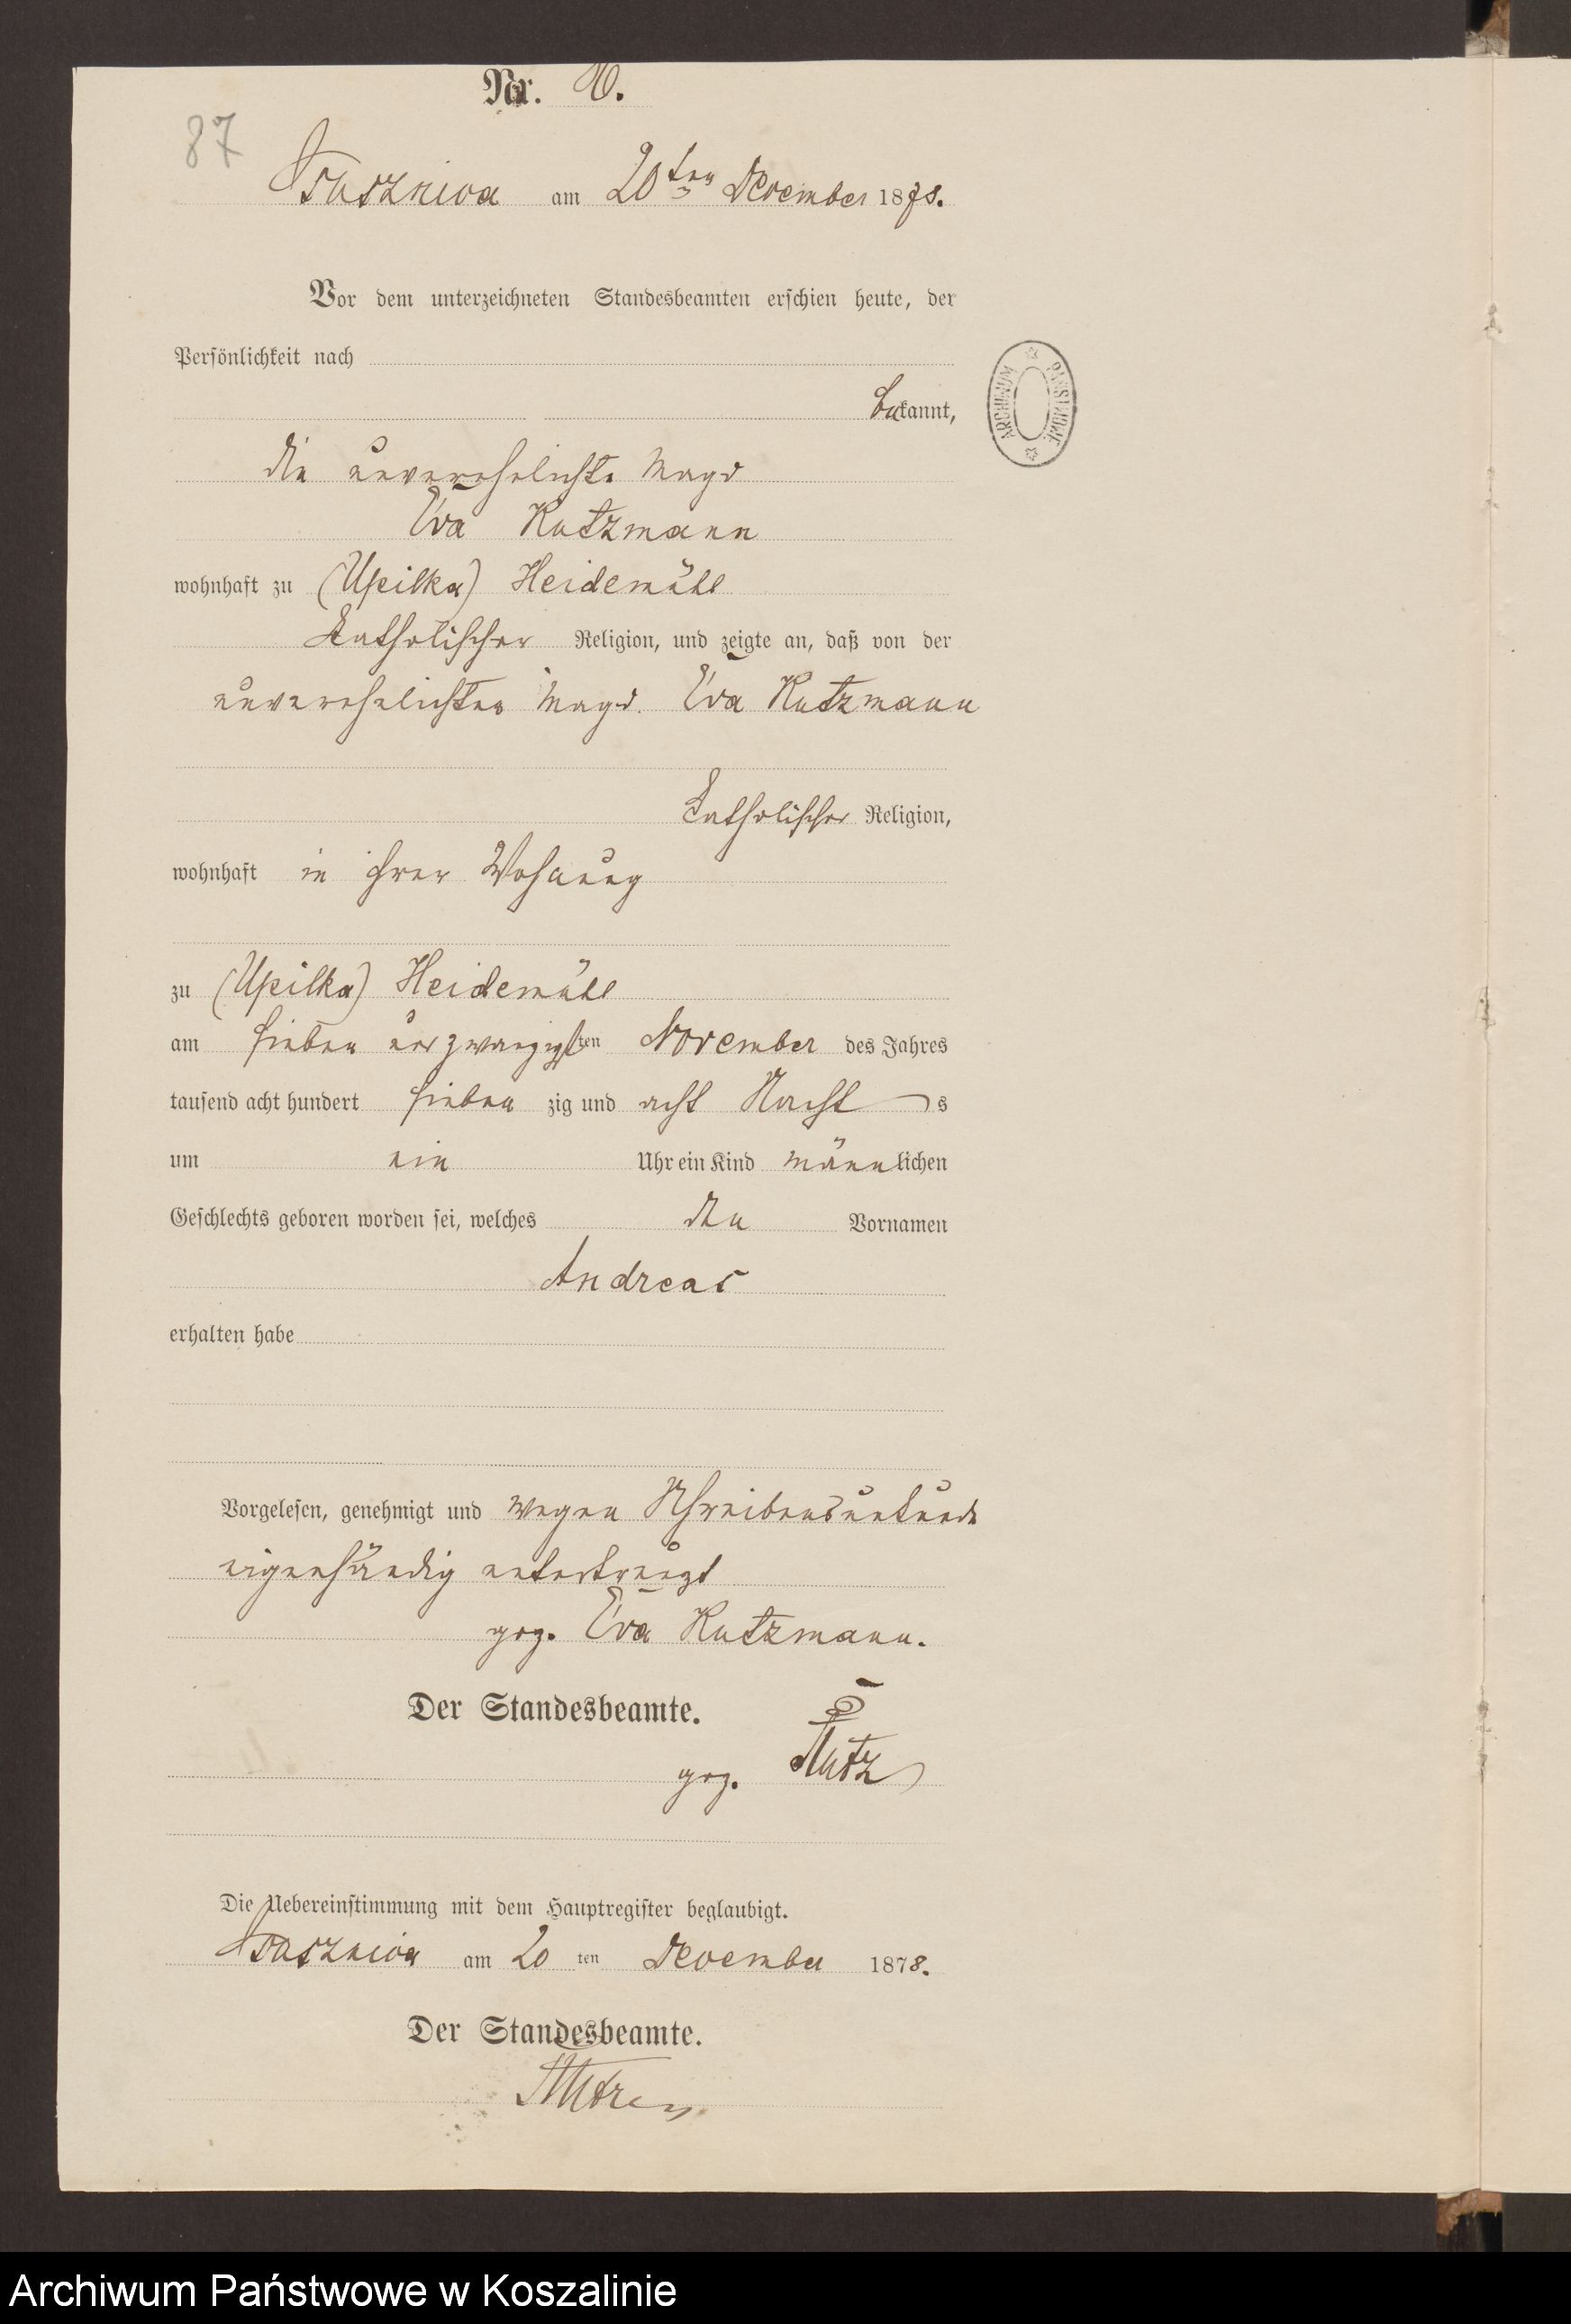 Nr.
87
am 20ten December 1878.
Vor dem unterzeichneten Standesbeamten erschien heute, der
Persönlichkeit nach
bekannt,
die unverehelichte Magd
Eva Kutzmann
wohnhaft zu (Upilka) Heidemühl
Katholischer Religion, und zeigte an, daß von der
unverehelichten Magd. Eva Kutzmann
Katholischer Religion,
wohnhaft in ihrer Wohnung
zu (Upilka) Heidemühl
am sieben und zwanzigsten November des Jahres
tausend acht hundert sieben zig und acht Nacht s
um ein Uhr ein Kind männlichen
Geschlechts geboren worden sei, welches den Vornamen
Andreas
erhalten habe
Vorgelesen, genehmigt und wegen Schreibensunkunde
eigenhändig unterkreuzt
gez. Eva Kutzmann.
Der Standesbeamte.
gez.
Die Uebereinstimmung mit dem Hauptregister beglaubigt.
am 20 ten December 1878.
Der Standesbeamte.
ARCHIWUM PAŃSTWOWE
Archiwum Państwowe w Koszalinie